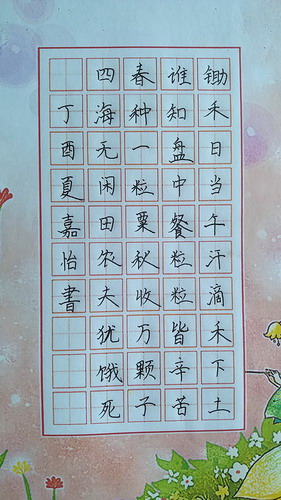 锄禾日当午汗滴禾下土
谁知盘中餐粒粒皆辛苦
春种一粒粟秋收万颗子
四海无闲田农夫犹饿死
丁酉夏嘉怡書